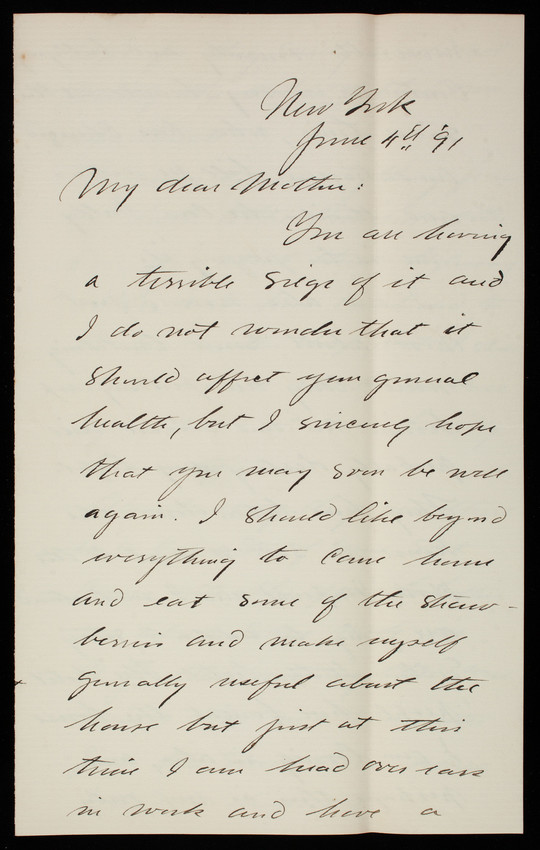 New York
June 4th '91
My dear Mother:
You are having
a terrible siege of it and
I do not wonder that it
should affect your general
health, but I sincerely hope
that you may soon be well
again. I should like beyond
everything to come home
and eat some of the straw-
berries and make myself
generally useful about the
house but just at this
time I am head over ears
in work and have a